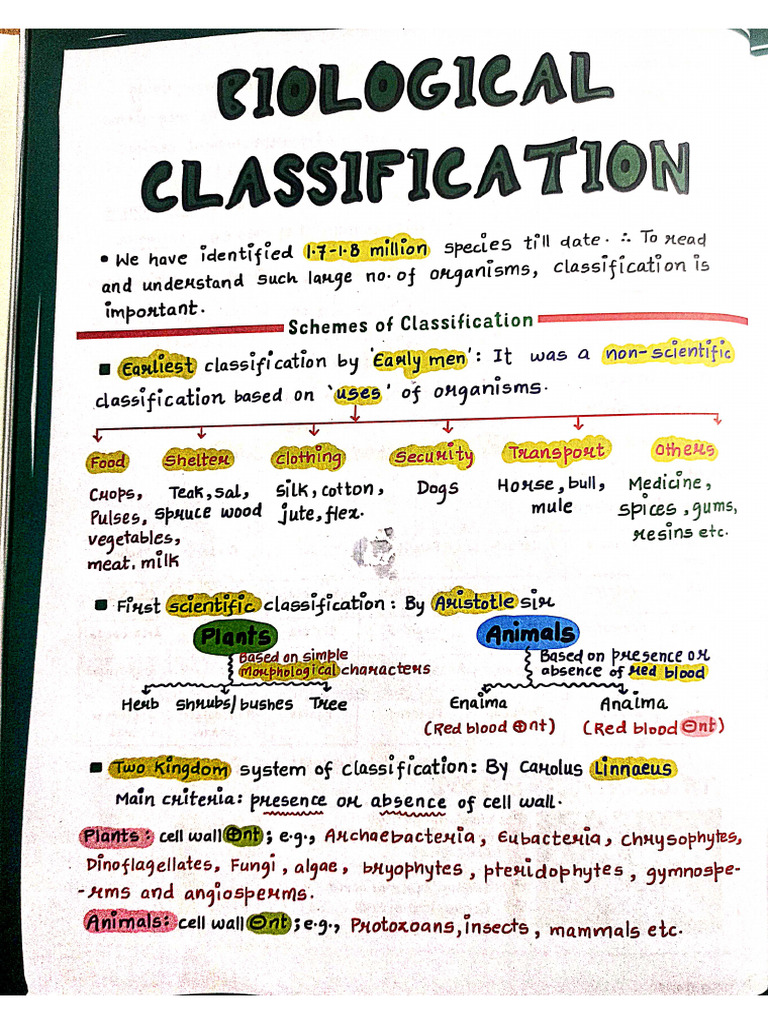 BIOLOGICAL
CLASSIFICATION
• We have identified 1.7-1.8 million species till date. ∴ To read
and understand such large no. of organisms, classification is
important.
Schemes of Classification
■ Earliest classification by 'Early men': It was a non-scientific
classification based on 'uses' of organisms.
Food Shelter Clothing Security Transport Others
Crops, Teak, sal, silk, cotton, Dogs Horse, bull, Medicine,
Pulses, spruce wood jute, flex. mule spices, gums,
vegetables, resins etc.
meat, milk
■ First scientific classification: By Aristotle sir
Plants Animals
Based on simple Based on presence or
morphological characters absence of red blood
Herb shrubs/bushes Tree Enaima Anaima
(Red blood ⊕nt) (Red blood ⊖nt)
■ Two Kingdom system of classification: By Carolus Linnaeus
Main criteria: presence or absence of cell wall.
Plants: cell wall ⊕nt; e.g., Archaebacteria, Eubacteria, chrysophytes,
Dinoflagellates, Fungi, algae, bryophytes, pteridophytes, gymnospe-
-rms and angiosperms.
Animals: cell wall ⊖nt; e.g., Protozoans, insects, mammals etc.